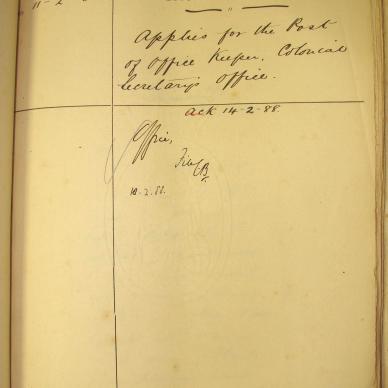 11-2
Applies for the Post
of Office Keeper, Colonial
Secretary's Office.
Ack 14-2-88.
Office,
File
10.2.88.